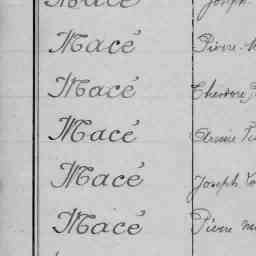 Macé Joseph
Macé Pierre
Macé Théodore
Macé
Macé Joseph
Macé Pierre